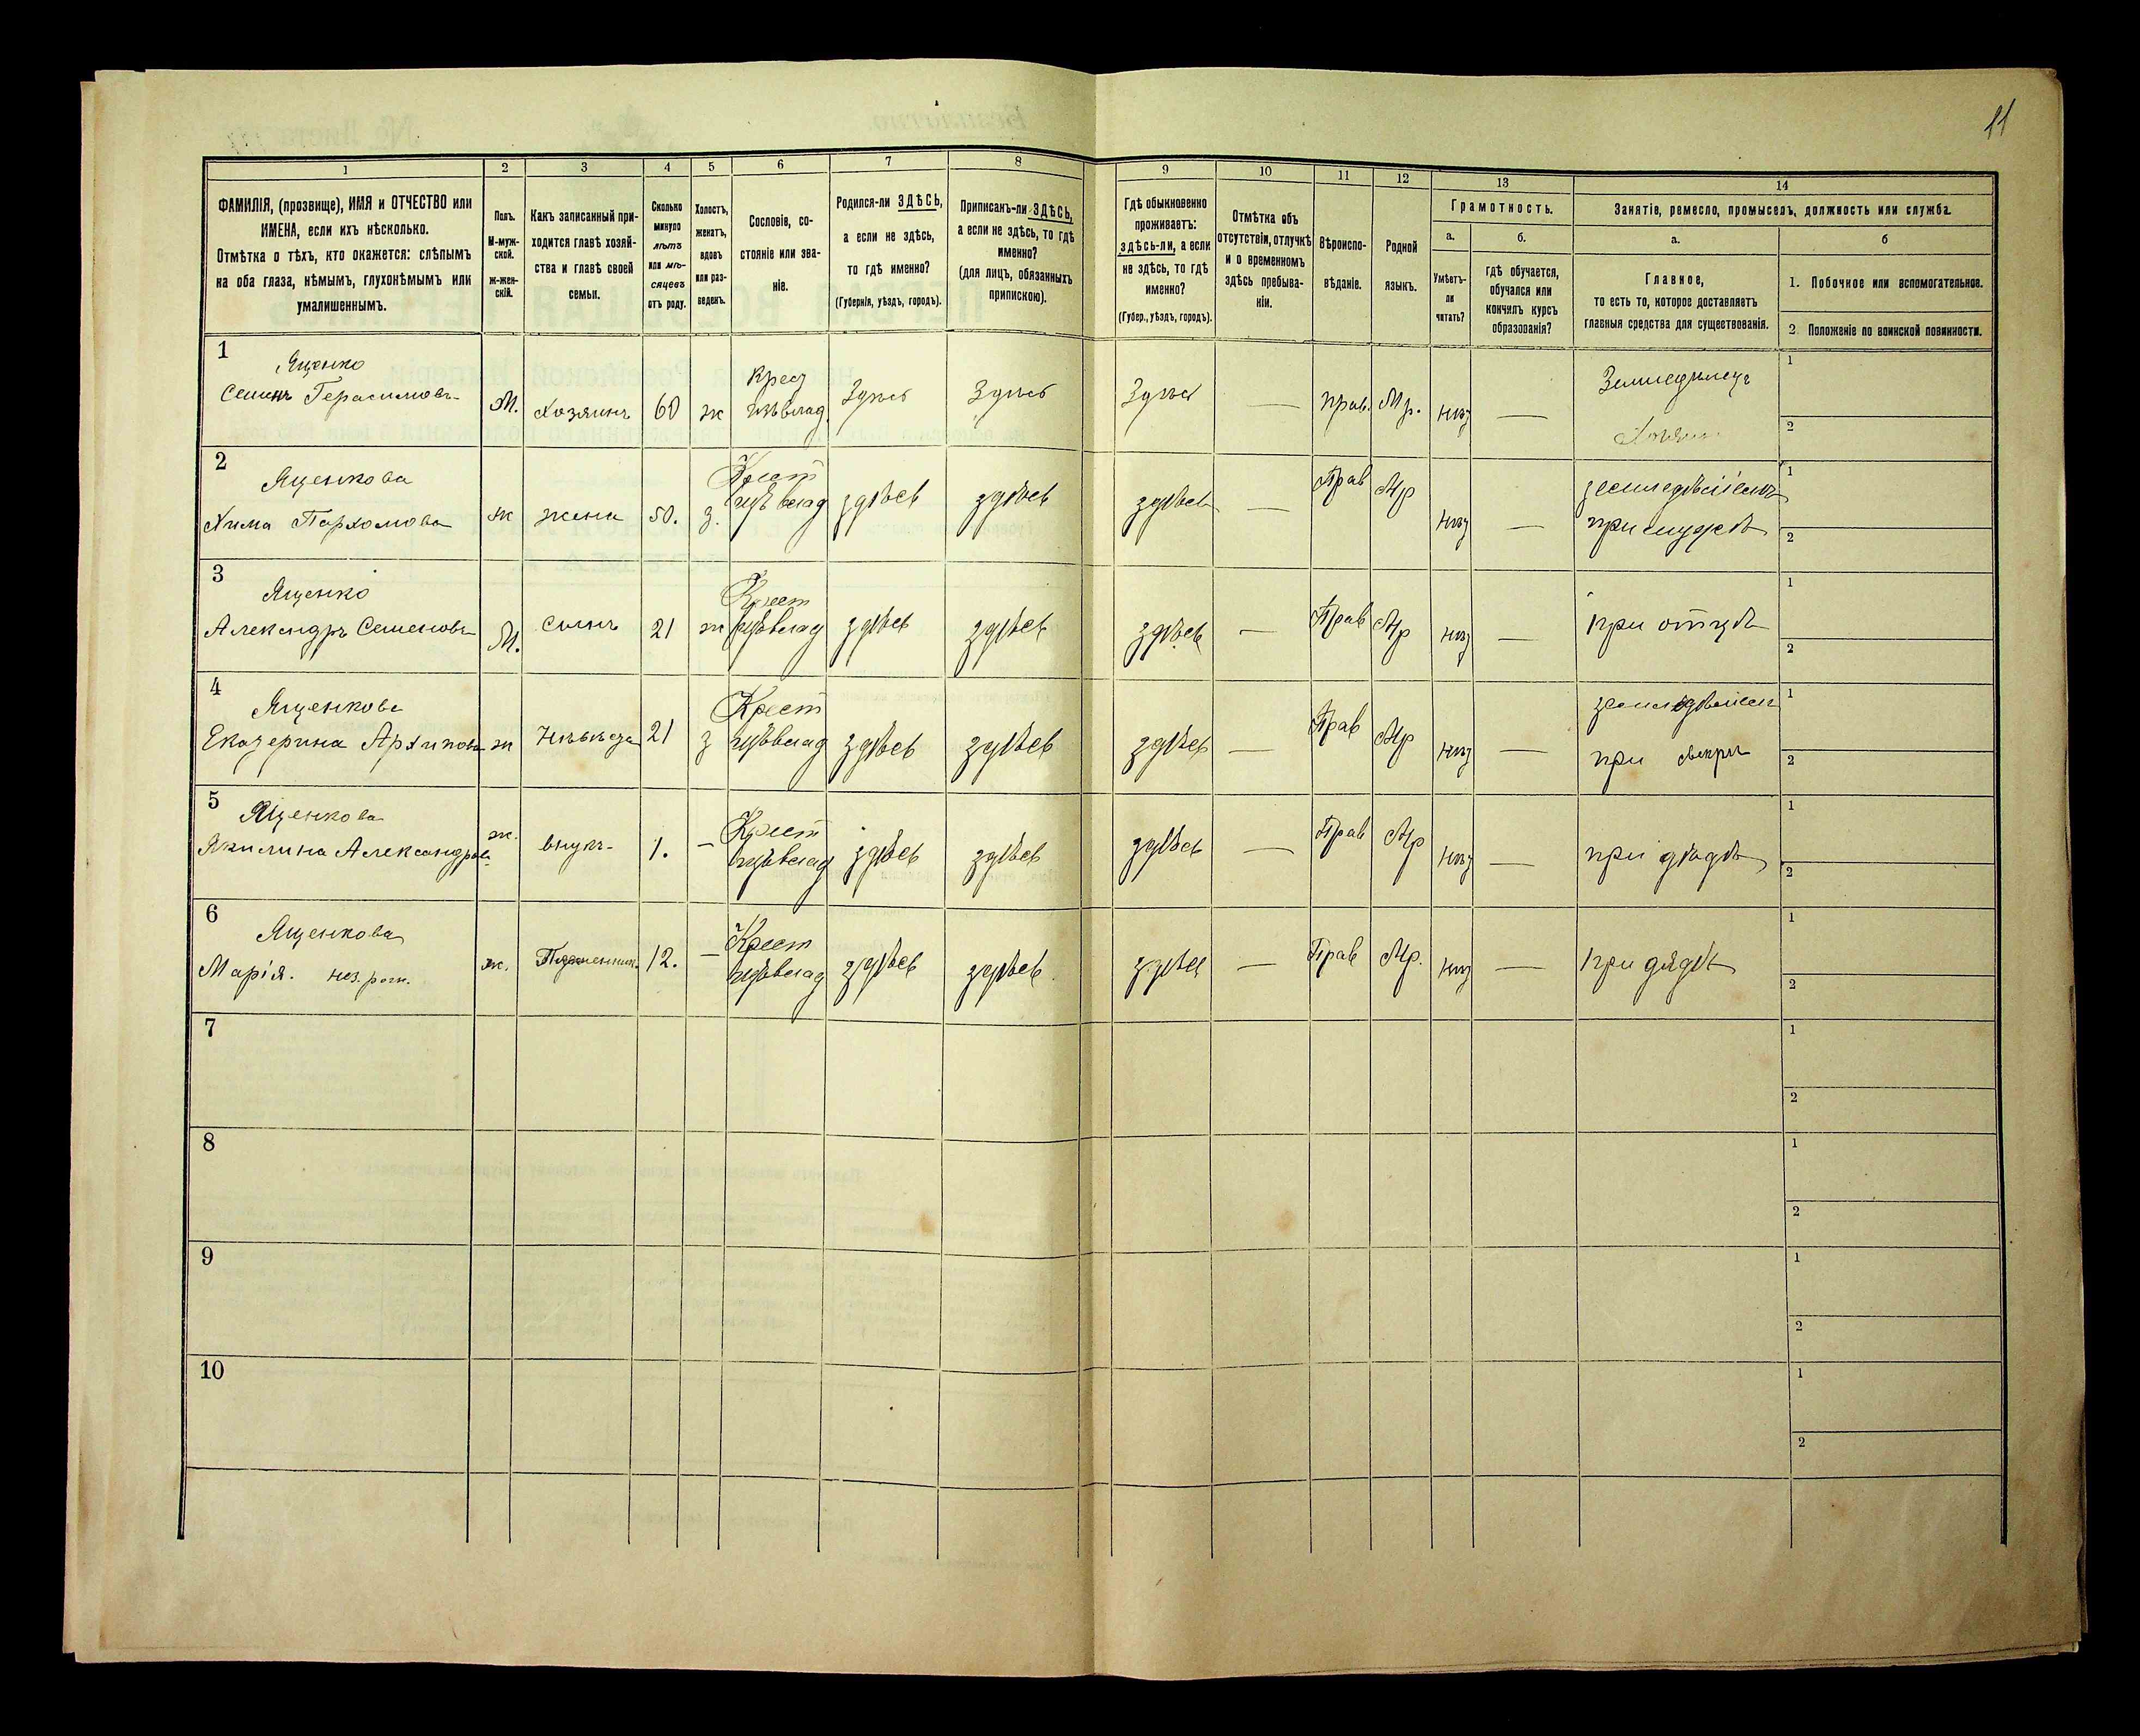 11
1
2
3
4
5
6
7
8
9
10
11
12
13
14
ФАМИЛІЯ, (прозвище), ИМЯ и ОТЧЕСТВО или
ИМЕНА, если ихъ нѣсколько.
Отмѣтка о тѣхъ, кто окажется: слѣпымъ
на оба глаза, нѣмымъ, глухонѣмымъ или
умалишеннымъ.
Полъ.
М-муж-
ской.
ж-жен-
скій.
Какъ записанный при-
ходится главѣ хозяй-
ства и главѣ своей
семьи.
Сколько
минуло
лѣтъ
или мѣ-
сяцевъ
отъ роду.
Холостъ,
женатъ,
вдовъ
или раз-
веденъ.
Сословіе, со-
стояніе или зва-
ніе.
Родился-ли ЗДѢСЬ,
а если не здѣсь,
то гдѣ именно?
(Губернія, уѣздъ, городъ).
Приписанъ-ли ЗДѢСЬ,
а если не здѣсь, то гдѣ
именно?
(для лицъ, обязанныхъ
припискою).
Гдѣ обыкновенно
проживаетъ:
здѣсь-ли, а если
не здѣсь, то гдѣ
именно?
(Губер., уѣздъ, городъ).
Отмѣтка объ
отсутствіи, отлучкѣ
и о временномъ
здѣсь пребыва-
ніи.
Вѣроиспо-
вѣданіе.
Родной
языкъ.
Грамотность.
а.
Умѣетъ-
ли
читать?
б.
гдѣ обучается,
обучался или
кончилъ курсъ
образованія?
Занятіе, ремесло, промыселъ, должность или служба.
а.
Главное,
то есть то, которое доставляетъ
главныя средства для существованія.
б
1. Побочное или вспомогательное.
2. Положеніе по воинской повинности.
1
Ященко
Семенъ Герасимовъ
М. Хозяинъ 60 ж
Здѣсь Здѣсь Здѣсь — прав. Мр. нѣт —
1
2
2
Ященкова
Хима Пархомова
ж жена 50. з. Крест
здѣсь здѣсь здѣсь — Прав Мр нѣт —
при мужѣ
1
2
3
Ященко
Александръ Семеновъ
М. сынъ 21 ж Крест
здѣсь здѣсь здѣсь — Прав Мр нѣт —
при отцѣ
1
2
4
Ященкова
Екатерина Архипова
ж 21 з Крест
здѣсь здѣсь здѣсь — Прав Мр нѣт —
при свекрѣ
1
2
5
Ященкова
Акилина Александров
ж. внукъ 1. — Крест
здѣсь здѣсь здѣсь — Прав Мр нѣт —
при дѣдѣ
1
2
6
Ященкова
Марія.
ж. 12. — Крест
здѣсь здѣсь здѣсь — Прав Мр. нѣт —
при дядѣ
1
2
7
1
2
8
1
2
9
1
2
10
1
2